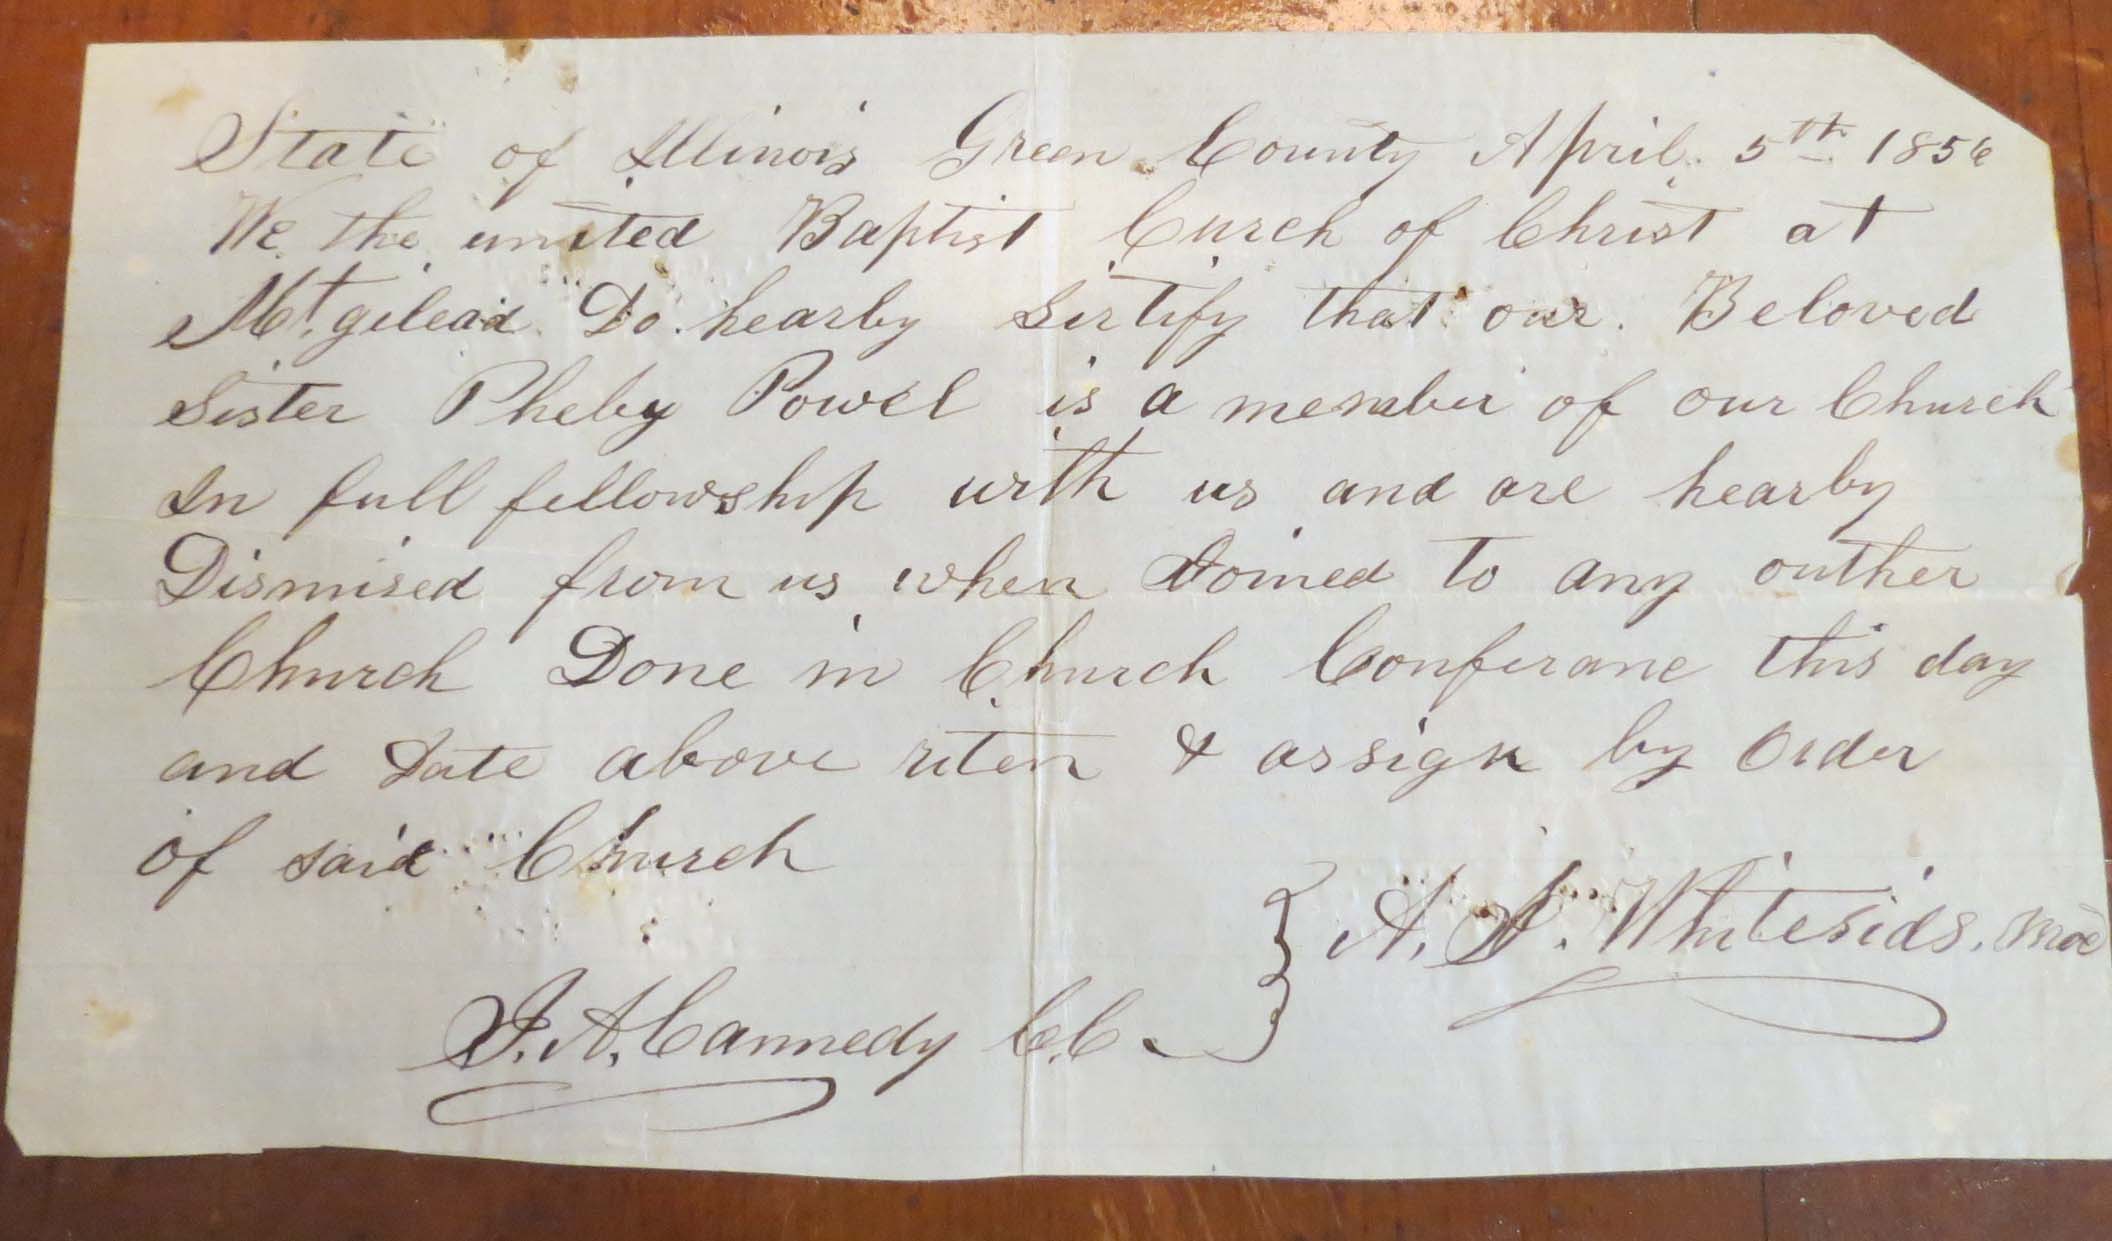 State of Illinois Green County April 5th 1856
We the united Baptist Curch of Christ at
Mt. gilead Do hearby sirtify that our Beloved
Sister Pheby Powel is a member of our Church
In full fellowship with us and are hearby
Dismised from us when Joined to any outher
Church Done in Church Conferanc this day
and date above riten & assign by Order
of said Church
A. J. Whitesids. Mod
J. A. Cannedy C.C.